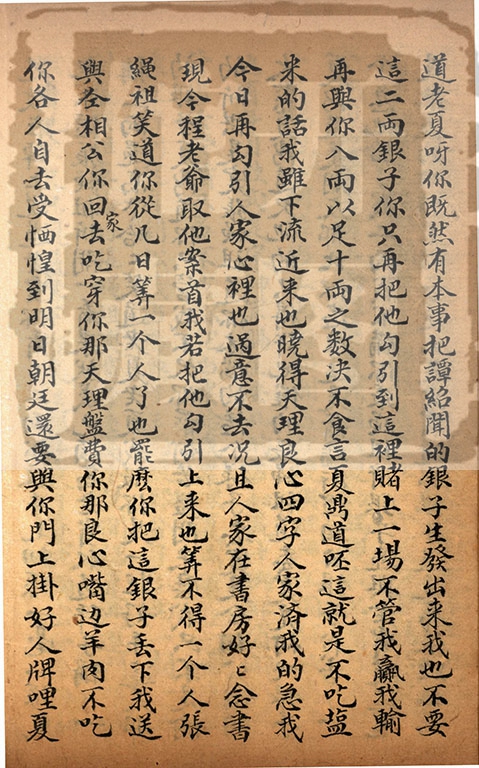 道老夏呀你既然有本事把譚紹聞的銀子生發出来我也不要
這二両銀子你只再把他勾引到這裡賭上一場不管我贏我輸
再與你八両以足十両之数决不食言夏鼎道呸這就是不吃塩
米的話我雖下流近来也曉得天理良心四字人家済我的急我
今日再勾引人家心裡也過意不去况且人家在書房好〻念書
現今程老爺取他案首我若把他勾引上来也筭不得一个人張
繩祖笑道你從几日筭一个人了也罷麽你把這銀子丢下我送
與圣相公你回家去吃穿你那天理盤費你那良心嘴边羊肉不吃
你各人自去受恓惶到明日朝廷還要與你門上掛好人牌哩夏